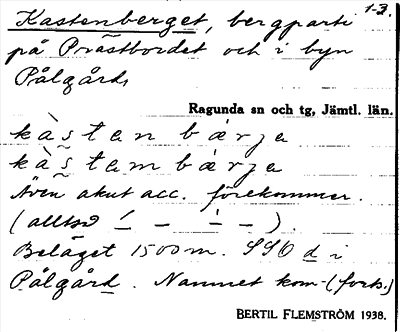 1-3.
Kastenberget, bergparti
på Prästbordet och i byn
Pålgård,
Ragunda sn och tg, Jämtl. län.
kàs̰tan bǽrja
kàs̰tam bǽrja
Även akut acc. förekommer.
(alltså ´ – ` – ).
Beläget 1500 m. SSO d i
Pålgård. Namnet kom- (forts.)
BERTIL FLEMSTRÖM 1938.